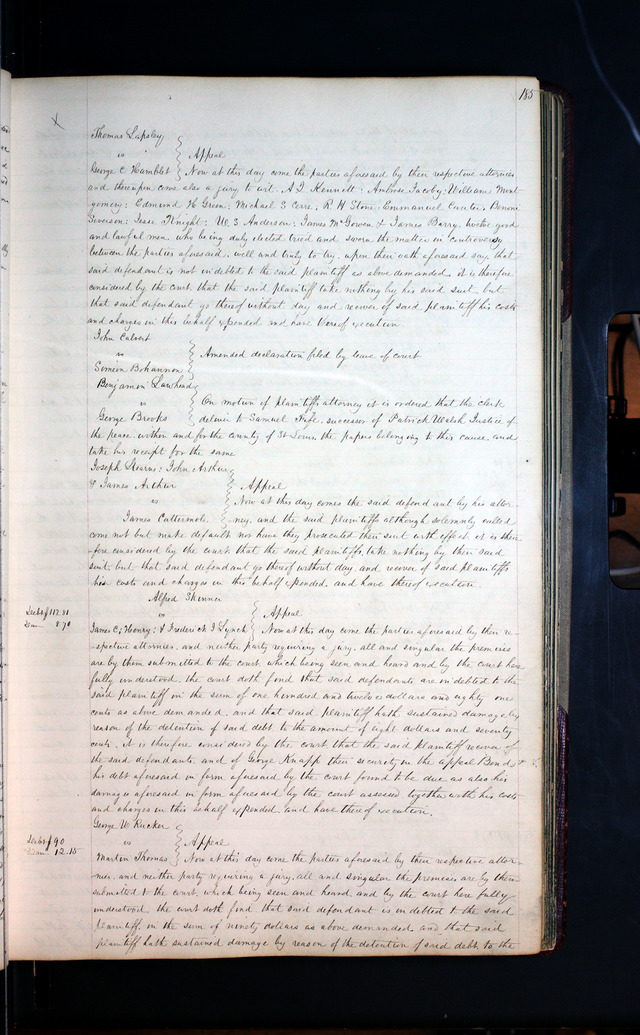 185
Thomas Lapsley
vs } Appeal
George C Hamblet } Now at this day come the parties aforesaid by their respective attornies
and thereupon come also a jury to wit. A. D. Kennett: Ambrose Jacoby: William Mont
gomery: Edmund H Green: Michael S Cerre. R H Stone: Emmanuel
Jesse Knight: W. S Anderson: James McGowen & James Barry. twelve good
and lawful men, who being duly elected tried and sworn the matter in controversy
between the parties aforesaid, well and truly to try, upon their oath aforesaid say, that
said defendant is not indebted to the said plaintiff as above demanded. it is therefore
considered by the court that the said plaintiff take nothing by his said suit, but
that said defendant go thereof without day and recover of said plaintiff his costs
and charges in this behalf expended and have thereof execution
John Calvert
vs } Amended declaration filed by leave of court
Simeon Bohannon
Benjamin Lawhend
vs } On motion of plaintiffs attorney it is ordered that the clerk
George Brooks } deliver to Samuel successor of Patrick Walsh Justice of
the peace within and for the county of St Louis, the papers belonging to this cause, and
take his receipt for the same
Joseph Stearns: John Arthur
& James Arthur } Appeal
vs } Now at this day comes the said defendant by his attor-
James Cattermole. } ney, and the said plaintiffs although solemnly called
come not but make default nor have they prosecuted their suit with effect. it is there
fore considered by the court that the said plaintiffs take nothing by their said
suit, but that said defendant go thereof without day and recover of said plaintiffs
his costs and charges in this behalf expended, and have thereof execution
Alfred Skinner
Debt $112.81
vs } Appeal
Dam 8.70
James C; Henry: & Frederick J Lynch } Now at this day come the parties aforesaid by their re-
-spective attornies, and neither party requiring a jury, all and singular the premises
are by them submitted to the court, which being seen and heard and by the court here
fully understood, the court doth find that said defendants are indebted to the
said plaintiff in the sum of one hundred and twelve dollars and eighty one
cents as above demanded, and that said plaintiff hath sustained damage by
reason of the detention of said debt to the amount of eight dollars and seventy
cents. it is therefore considered by the court that the said plaintiff recover of
the said defendants, and of George Knapp their security in the appeal Bond
his debt aforesaid in form aforesaid by the court found to be due as also his
damages aforesaid in form aforesaid by the court assessed together with his costs
and charges in this behalf expended and have thereof execution.
George W Rucker
Debt $90
vs } Appeal
Dam 12.15
Martin Thomas } Now at this day come the parties aforesaid by their respective attor-
nies, and neither party requiring a jury, all and singular the premises are by them
submitted to the court, which being seen and heard, and by the court here fully
understood, the court doth find that said defendant is indebted to the said
plaintiff in the sum of ninety dollars as above demanded, and that said
plaintiff hath sustained damage by reason of the detention of said debt, to the